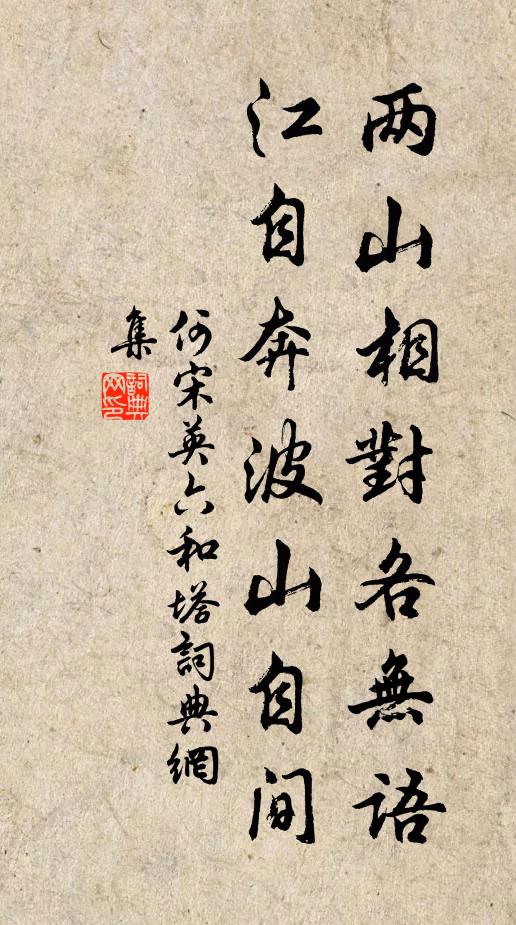 两山相對各無語
江自奔波山自间
何宋英六和塔詞典網
集
詞典
网印